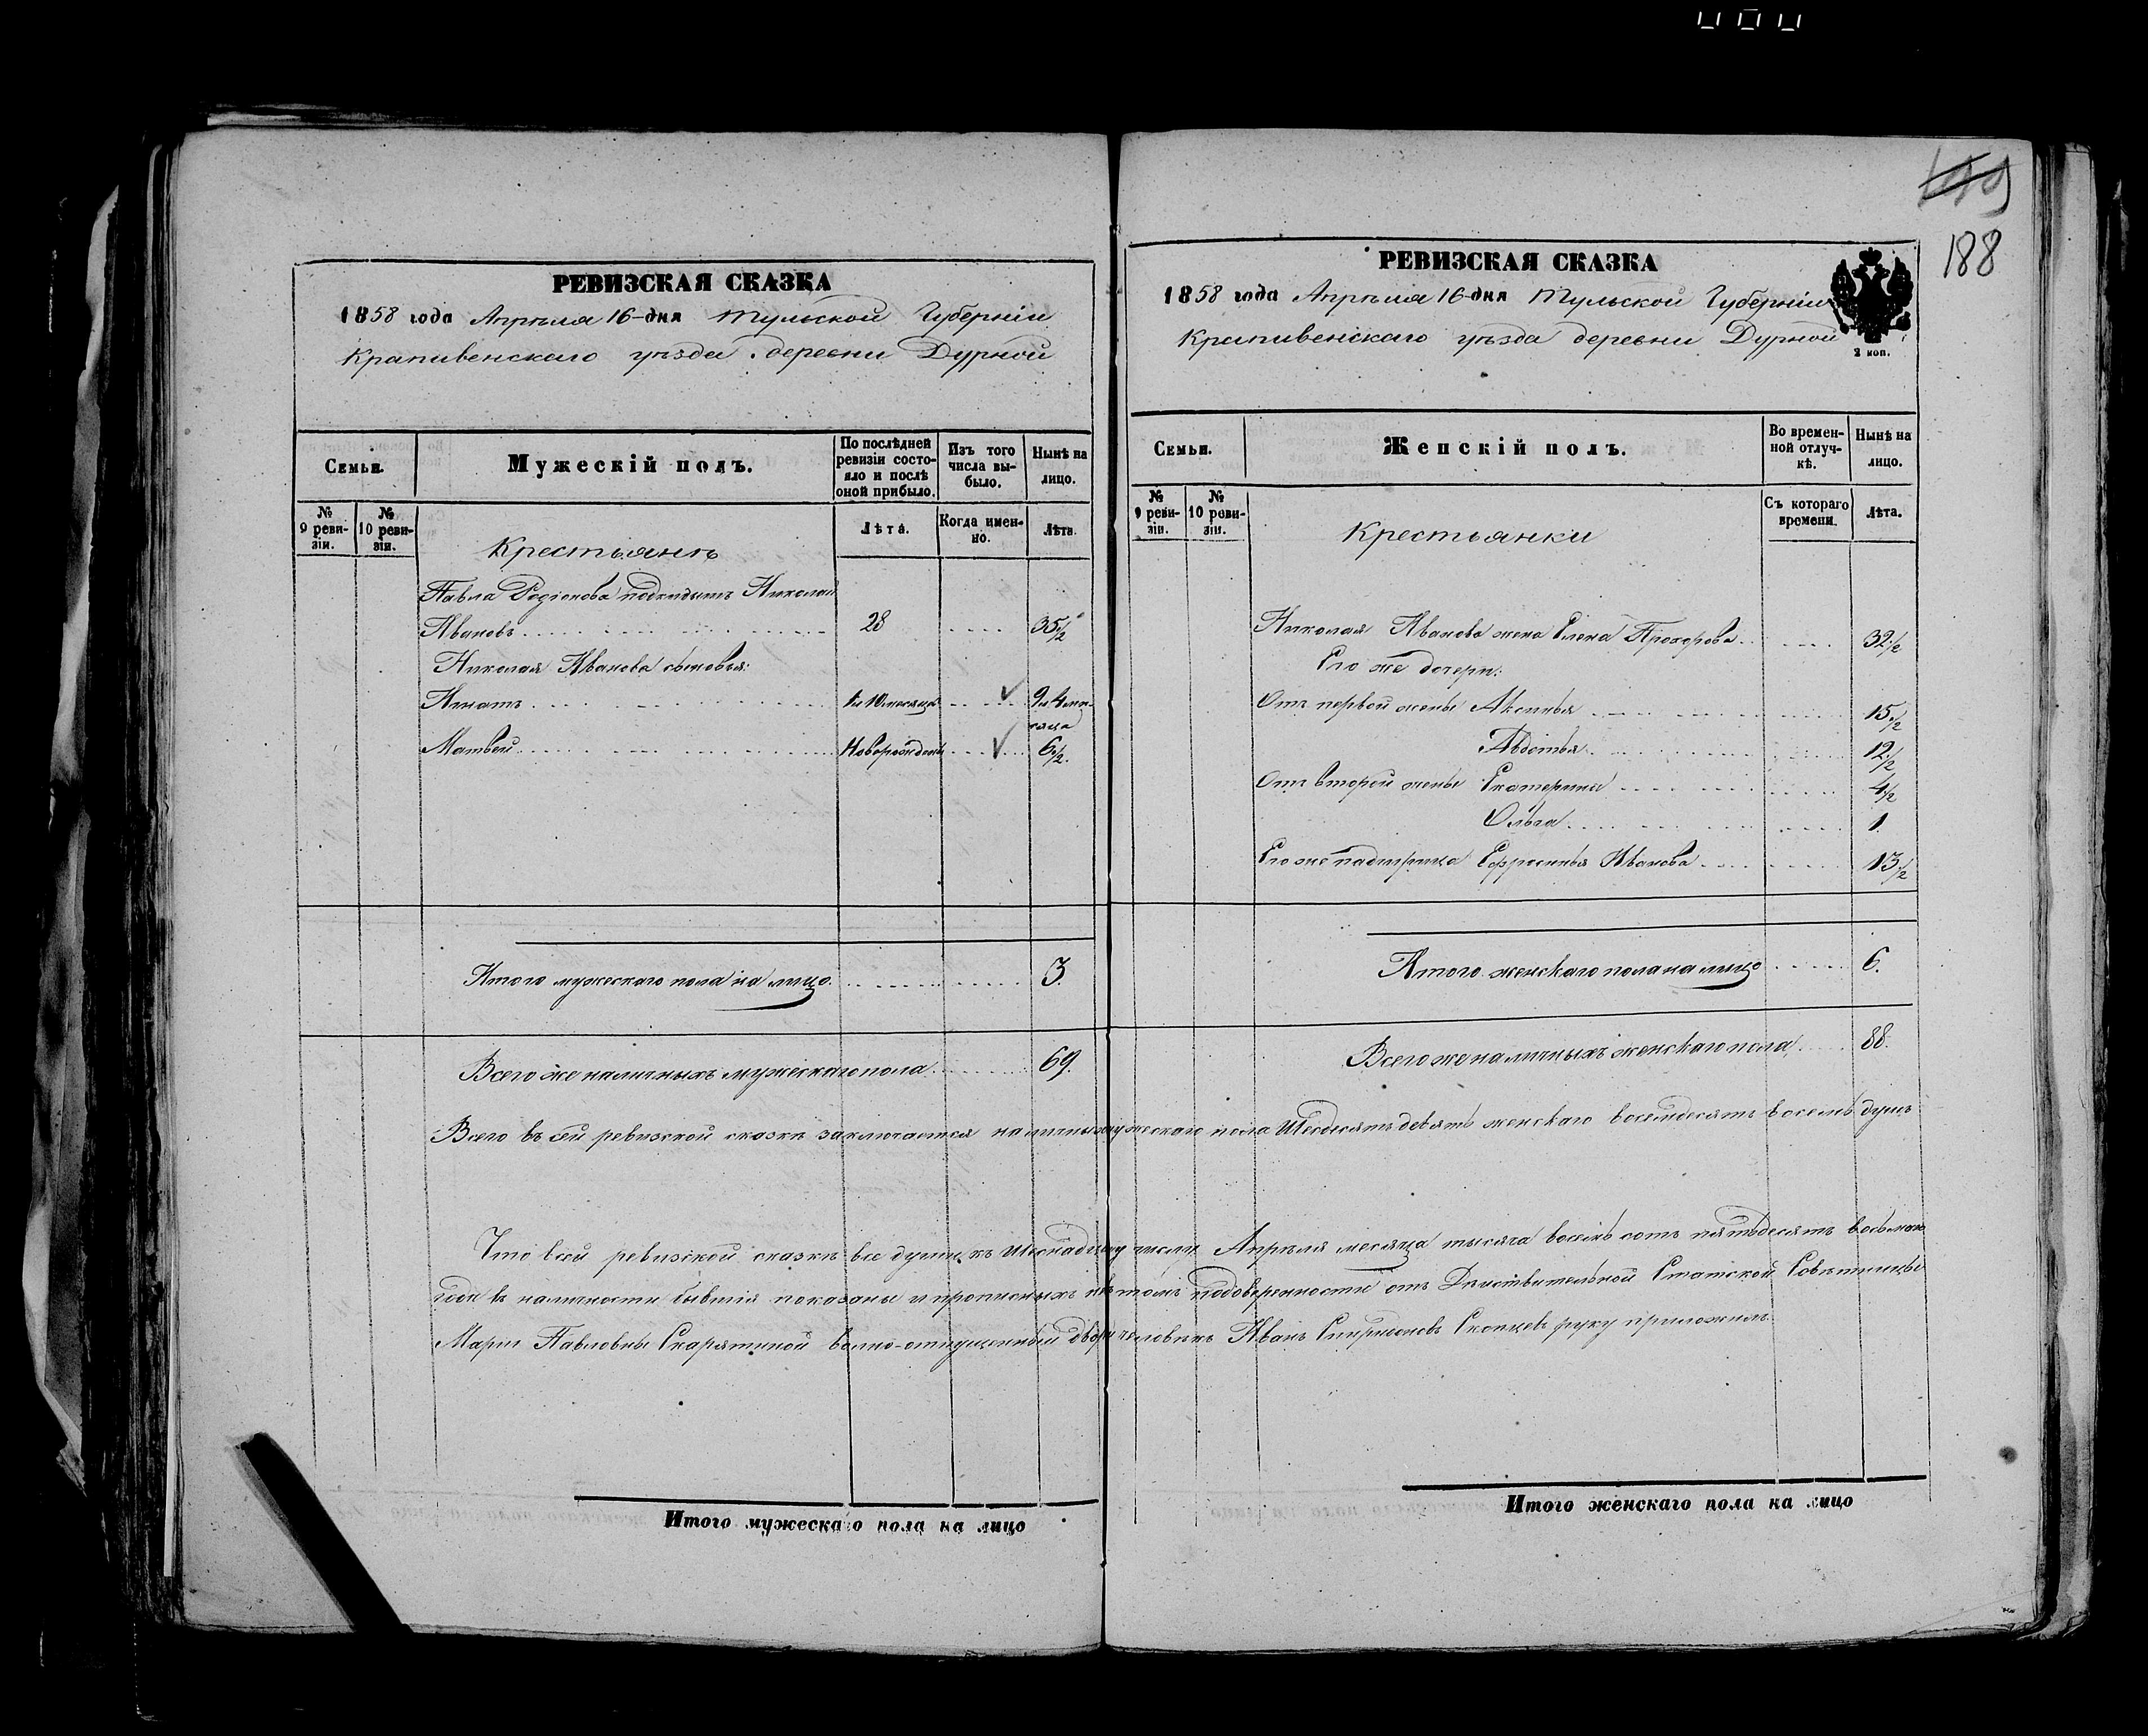 188
РЕВИЗСКАЯ СКАЗКА
1858 года Апрѣля 16 дня Тульской Губерніи
Крапивенскаго уѣзда деревни Дурной
Семьи.
Мужескій полъ.
По послѣдней ревизіи состояло и послѣ оной прибыло.
Изъ того числа выбыло.
Нынѣ на лицо.
№ 9 ревизіи.
№ 10 ревизіи.
Лѣта.
Когда именно.
Лѣта.
Крестьянъ
Павла Родіонова подкидышъ Николай
Ивановъ 28 35 1/2
Николая Иванова сыновья:
Игнатъ 1 и 10 месяцев 9 и 4 месяца
Матвей Новорожденъ 6 1/2.
Итого мужескаго пола на лицо. 3.
Всего же наличныхъ мужескаго пола 69.
РЕВИЗСКАЯ СКАЗКА
1858 года Апрѣля 16 дня Тульской Губерніи
Крапивенскаго уѣзда деревни Дурной
2 коп.
Семьи.
Женскій полъ.
Во временной отлучкѣ.
Нынѣ на лицо.
№ 9 ревизіи.
№ 10 ревизіи.
Съ котораго времени.
Лѣта.
Крестьянки
Николая Иванова жена Елена Прохорова 32 1/2
Его же дочери:
Отъ первой жены Аксинья 15 1/2
Авдотья 12 1/2
Отъ второй жены Екатерина 4 1/2
Ольга 1.
Его же падчерица Ефросинья Иванова 13 1/2
Итого женскаго пола на лицо 6.
Всего же наличныхъ женскаго пола 88.
Всего въ сей ревизской сказкѣ заключается наличных мужескаго пола Шесдесятъ девять женскаго восемдесятъ восемь душъ
Что в сей ревизской сказкѣ все души къ Шеснадцатому числу Апрѣля месяца тысяча восемь сотъ пятьдесятъ восьмого
года въ наличности бывшія показаны и прописныхъ нѣтъ в томъ по доверенности отъ Дѣйствительной Статской Совѣтницы
Маріи Павловны Скарятиной вольно-отпущенный двор. человѣкъ Иванъ Спиридоновъ Скопцевъ руку приложилъ.
Итого мужескаго пола на лицо
Итого женскаго пола на лицо